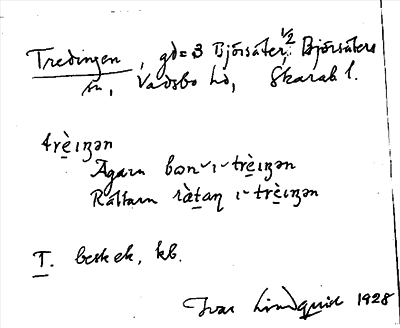 Tredingen, gd = 3 Björsäter, 1/2 Björsäters
sn, Vadsbo hd, Skarab l.
trè̱ıŋən
Ägarn bon ı trè̱ıŋən
Rättarn rà̱taɳ ı trè̱ıŋən
T. besk ek, kb.
Ivar Lindquist 1928